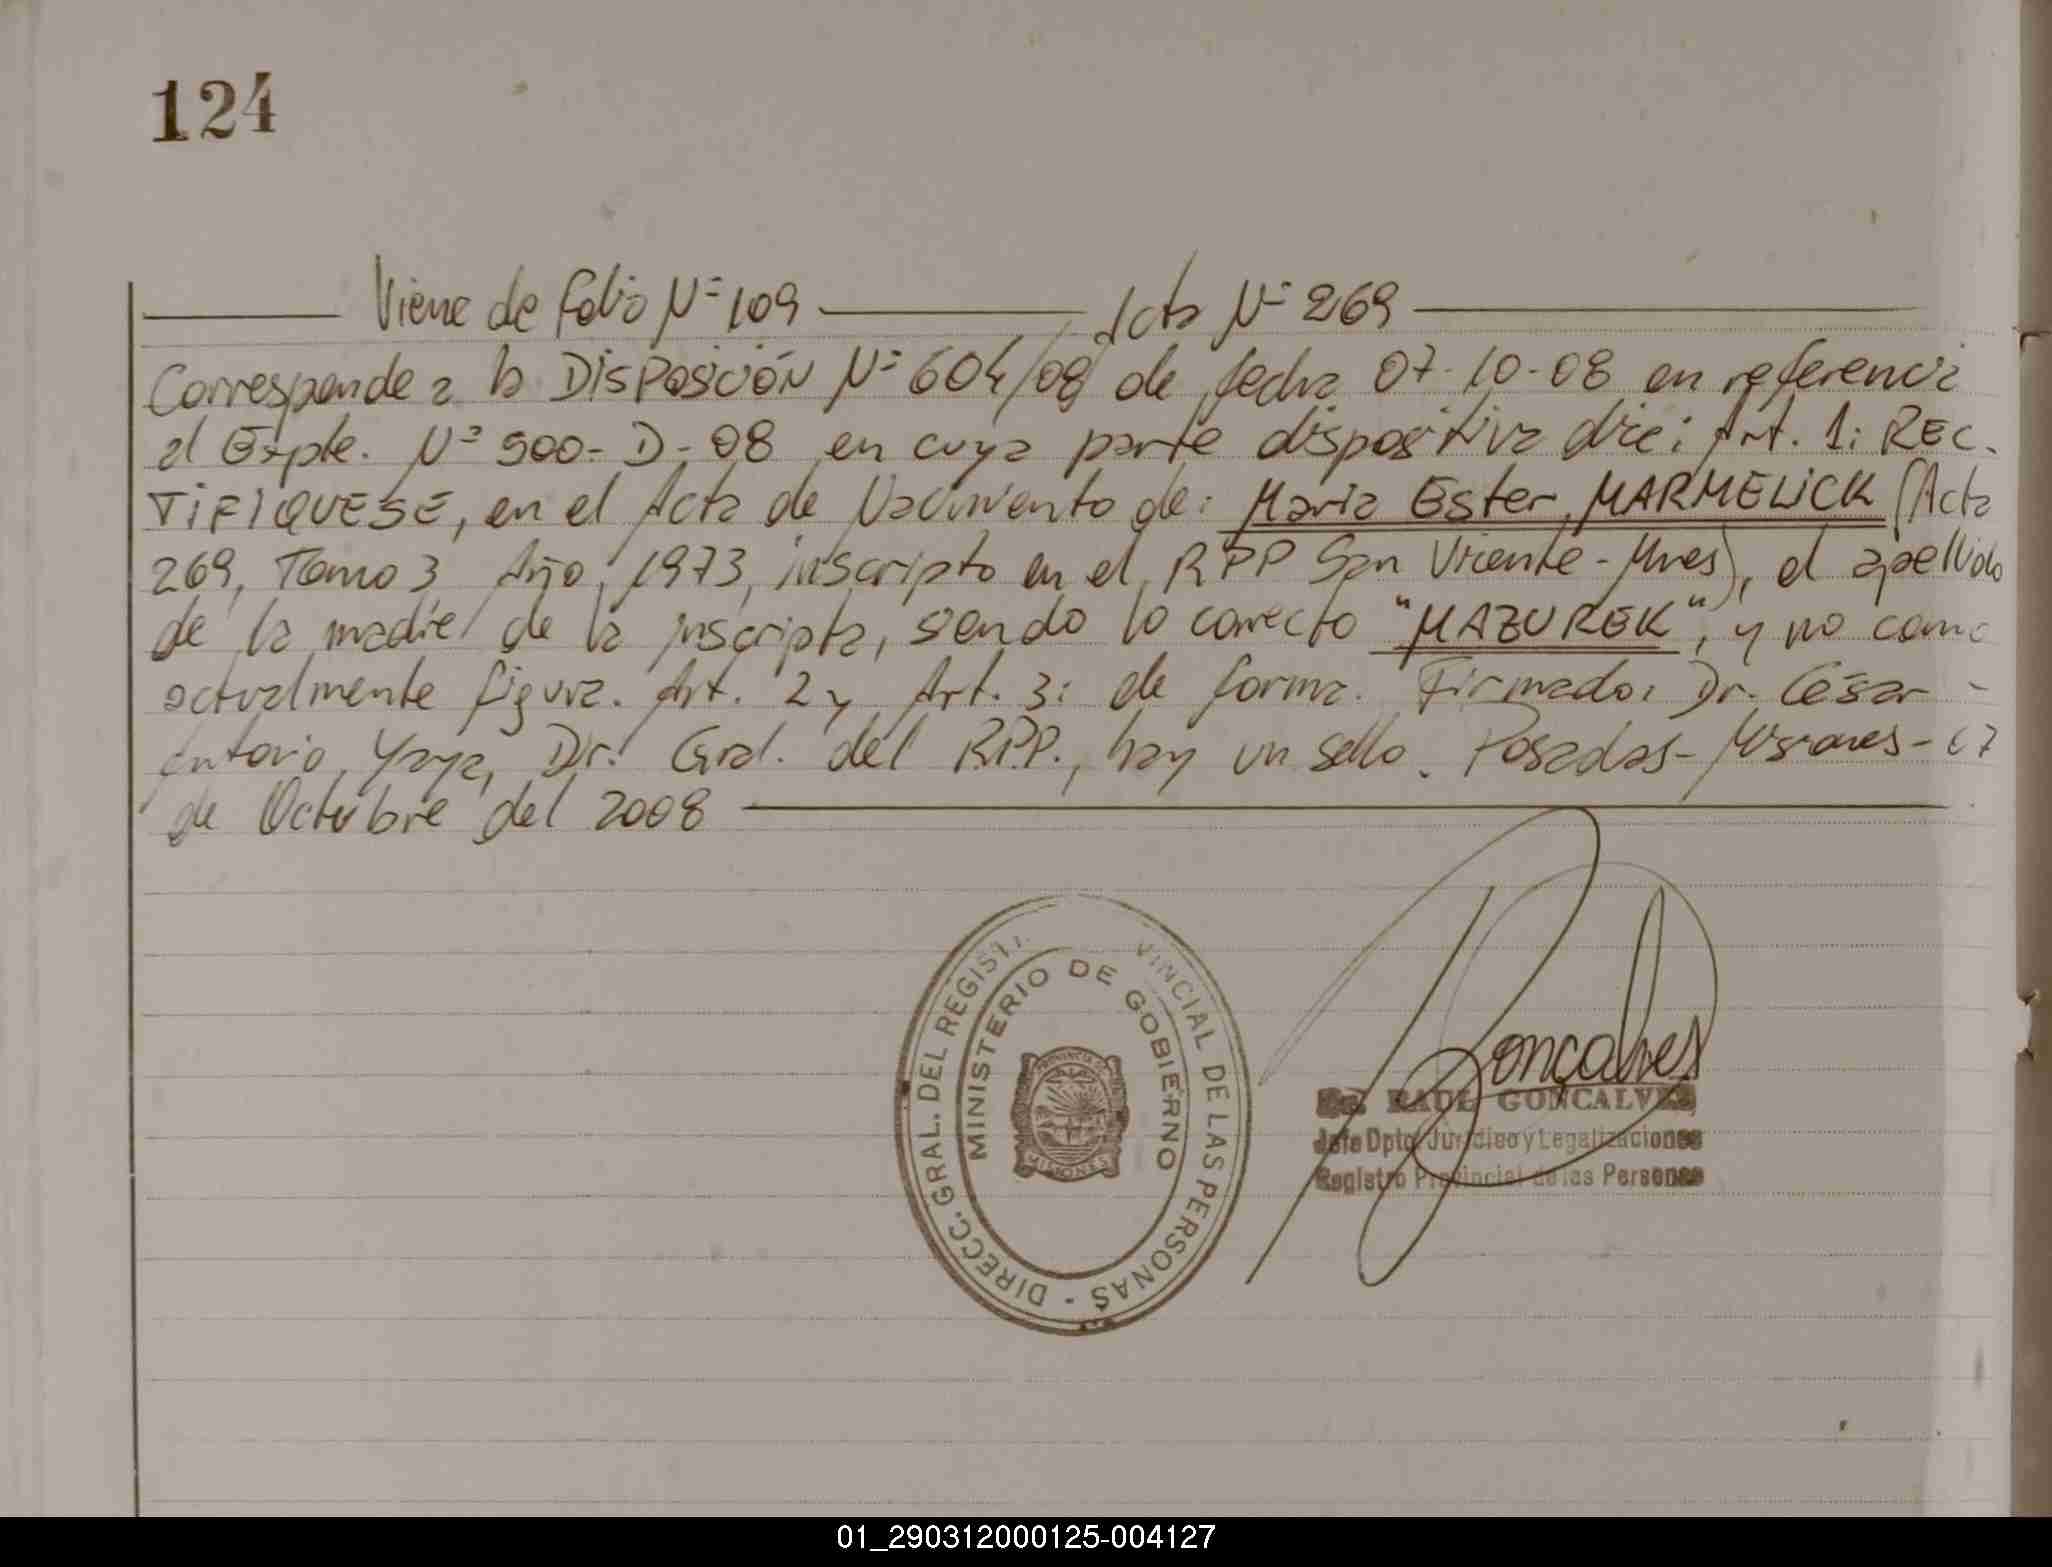 124
Viene de folio Nº 109 Acta Nº 269
Corresponde a la DISPOSICIÓN Nº 604/08 de fecha 07-10-08 en referencia
al Expte. Nº 500-D-08 en cuya parte dispositiva dice: Art. 1: REC-
TIFIQUESE, en el Acta de Nacimiento de: Maria Ester, MARMELICK (Acta
269, Tomo 3, Año, 1973, inscripto en el RPP San Vicente-Mnes), el apellido
de la madre de la inscripta, siendo lo correcto "MAZUREK", y no como
actualmente figura. Art. 2 y Art. 3: de forma. Firmado: Dr. César -
Antonio, Yaya, Dir. Gral. del R.P.P., hay un sello. Posadas-Misiones-07
de Octubre del 2008
DIRECC. GRAL. DEL REGIST VINCIAL DE LAS PERSONAS -
MINISTERIO DE GOBIERNO
PROVINCIA
MISIONES
Gonçalves
RAUL GONCALVES
Jefe Dpto. Jurídico y Legalizaciones
Registro Provincial de las Personas
01_290312000125-004127